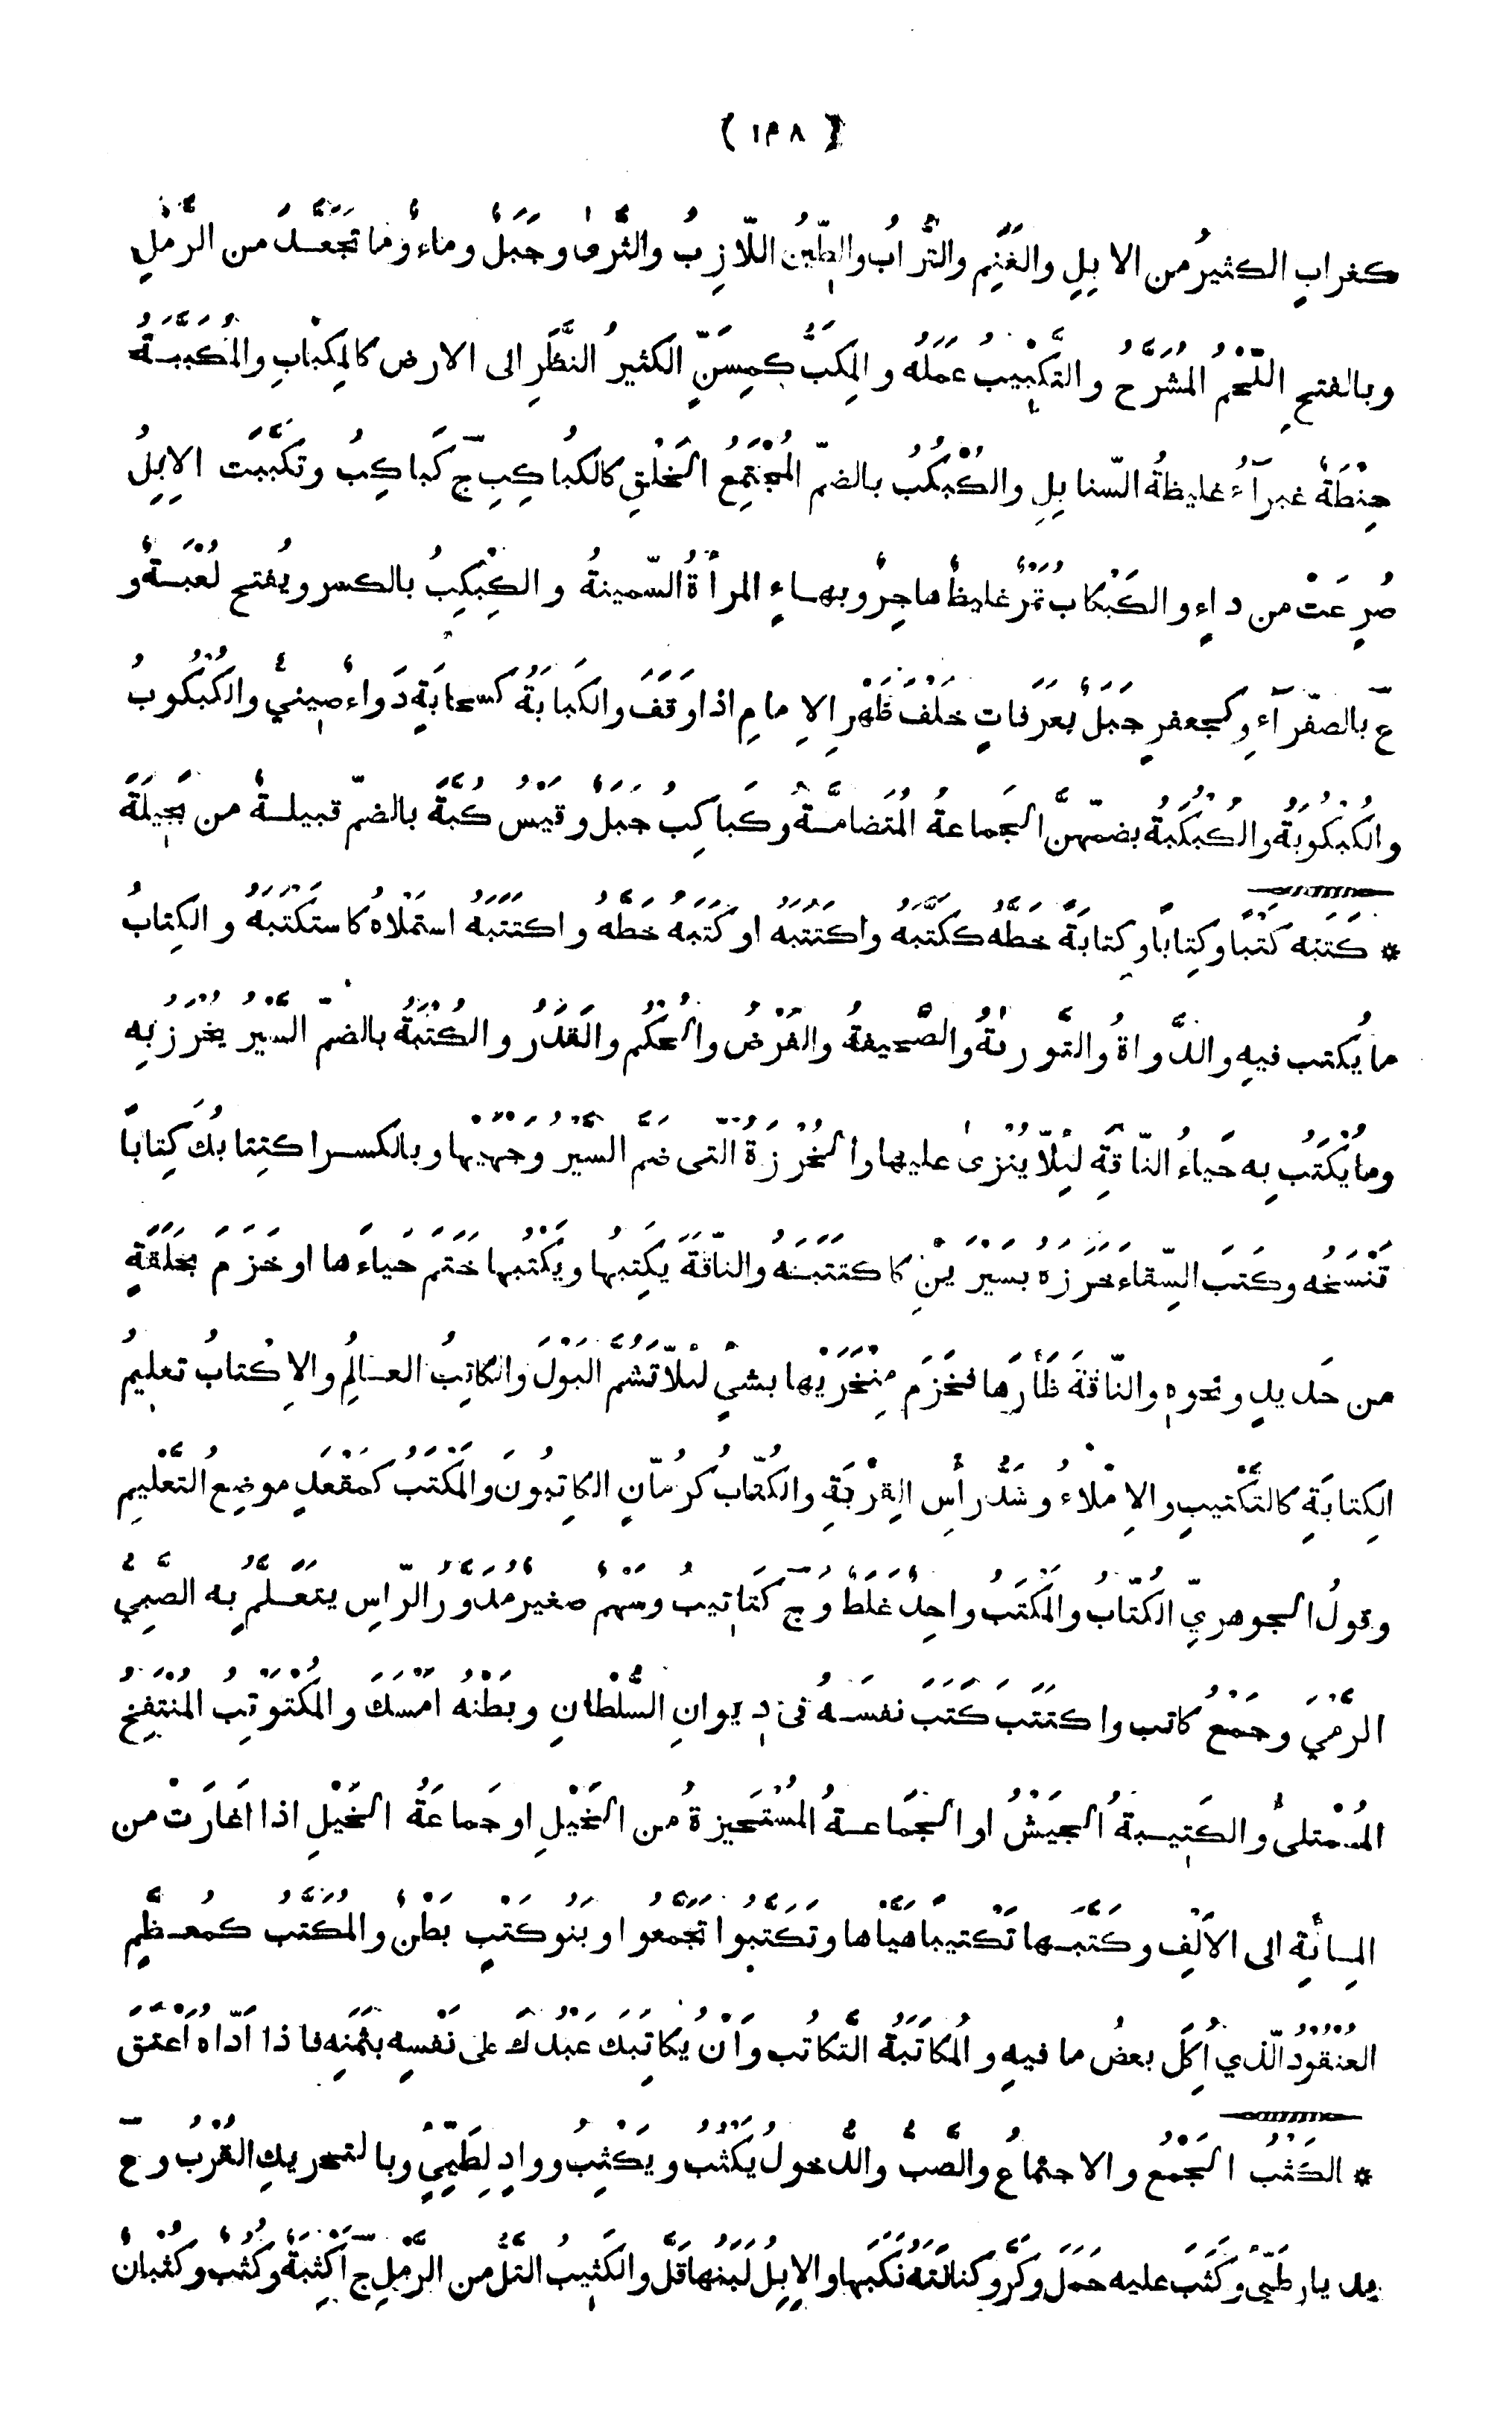 ( ١٣٨ )
كغرابٍ الكثيرُ من الابِلِ والغَنَمِ والتُّرابُ والطِّينُ اللّازِبُ والثَّرىٰ وجَبَلٌ وماءٌ وما تَجَعَّدَ من الرَّمْلِ
وبالفتحِ اللّحْمُ المُشَرَّحُ والتَّكْبِيبُ عَمَلُهُ والمِكَبُّ كمِسَنٍّ الكثيرُ النَّظَرِ الى الارض كالمِكْبابِ والمُكَبَّبَةُ
حِنْطَةٌ غبرآءُ غليظةُ السّنابِلِ والكُبْكُبُ بالضمّ المُجْتَمِعُ الخَلْقِ كالكُباكِبِ جّ كَباكِبُ وتَكَبَّبَت الاِبِلُ
صُرِعَتْ من داءٍ والكَبْكابُ تَمْرٌ غليظٌ هاجِرٌ وبهاءٍ المرأةُ السّمينةُ والكِبْكِبُ بالكسر ويُفتح لُعْبَةٌ و
عّ بالصّفْرآءِ وكجعفرٍ جَبَلٌ بعَرَفاتٍ خَلْفَ ظَهْرِ الاِمامِ اذا وَقَفَ والكَبابَةُ كسحابَةٍ دَواءٌ صِينيٌّ والكُبْكُوبُ
والكُبْكُوبَةُ والكُبْكُبَةُ بضمّهنَّ الجَماعةُ المُتَضامَّةُ وكَباكِبُ جَبَلٌ وقَيْسُ كُبَّةَ بالضمّ قبيلةٌ من بَجِيلَةَ
* كَتَبَه كَتْبًا وكِتابًا وكِتابَةً خَطَّهُ ككَتَّبَهُ واكتَتَبَهُ او كَتَبَهُ خَطَّهُ واكتَتَبَهُ استَمْلاهُ كاستَكْتَبَهُ والكِتابُ
ما يُكتب فيهِ والدَّواةُ والتَّوْرىٰةُ والصَّحيفةُ والفَرْضُ والحُكْمُ والقَدَرُ والكُتْبَةُ بالضمّ السَّيْرُ يُخْرَزُ بِه
وما يُكْتَبُ بِه حَياءُ النّاقَةِ لِئَلّا يُنْزىٰ عليها والخُرْزَةُ الّتى ضَمَّ السَّيْرُ وجْهَيْها وبالكسر اكتِتابُكَ كِتابًا
تَنْسَخُه وكَتَبَ السِّقاءَ خَرَزَه بسَيْرَيْنِ كاكتَتَبَهُ والنّاقَةَ يَكْتِبُها ويَكْتُبُها خَتَمَ حَياءَها او خَزَمَ بحَلْقَةٍ
من حَديدٍ ونحوِهِ والنّاقَةَ ظَأَرَها فخَزَمَ مِنْخَرَيْها بشيْءٍ لئلّا تَشُمَّ البَوْلَ والكاتِبُ العالِمُ والاِكْتابُ تعلِيمُ
الكِتابَةِ كالتَّكْتِيبِ والاِمْلاءُ وشَدُّ رأْسِ القِرْبَةِ والكُتّابُ كرُمّانٍ الكاتِبُونَ والمَكْتَبُ كمَقْعَدٍ موضِعُ التَّعْلِيمِ
وقولُ الجوهريِّ الكُتّابُ والمَكْتَبُ واحِدٌ غَلَطٌ وجّ كَتاتِيبُ وسَهْمٌ صغيرٌ مُدَوَّرُ الرّاسِ يتَعَلَّمُ بِه الصَّبِيُّ
الرَّمْيَ وجَمْعُ كاتب واكتَتَبَ كَتَبَ نفسَهُ فى دِيوانِ السُّلْطانِ وبَطْنُهُ امْسَكَ والمُكْتَوْتِبُ المُنْتَفِخُ
المُمْتلئُ والكَتِيبةُ الجَيْشُ او الجَماعةُ المُسْتَحِيزةُ من الخَيْلِ او جَماعَةُ الخَيْلِ اذا اَغارَتْ من
المِائَةِ الى الاَلْفِ وكَتَّبَها تَكْتِيبًا هَيَّأَها وتَكَتَّبُوا تَجَمَّعُوا وبَنُو كَتْبٍ بَطْنٌ والمُكَتَّبُ كمُعَظَّمٍ
العنقُودُ الّذي اُكِلَ بعضُ ما فيهِ والمُكاتَبَةُ التَّكاتُب واَنْ يُكاتِبَكَ عَبْدُكَ على نَفْسِهِ بثَمَنِهِ فاذا ادّاهُ اُعْتِقَ
* الكَثْبُ الجَمْعُ والاجتماعُ والصَّبُّ والدُّخولُ يَكْثُبُ ويَكْثِبُ ووادٍ لِطَيِّئٍ وبالتحريكِ القُرْبُ وعّ
بديار طَيِّئٍ وكَثَبَ عليه حَمَلَ وكَرَّ وكنانَتَه نَكَبَها والاِبِلُ لَبَنُها قَلَّ والكَثِيبُ التَّلُّ من الرَّمْلِ جّ اَكْثِبَةٌ وكُثُبٌ وكُثْبانٌ